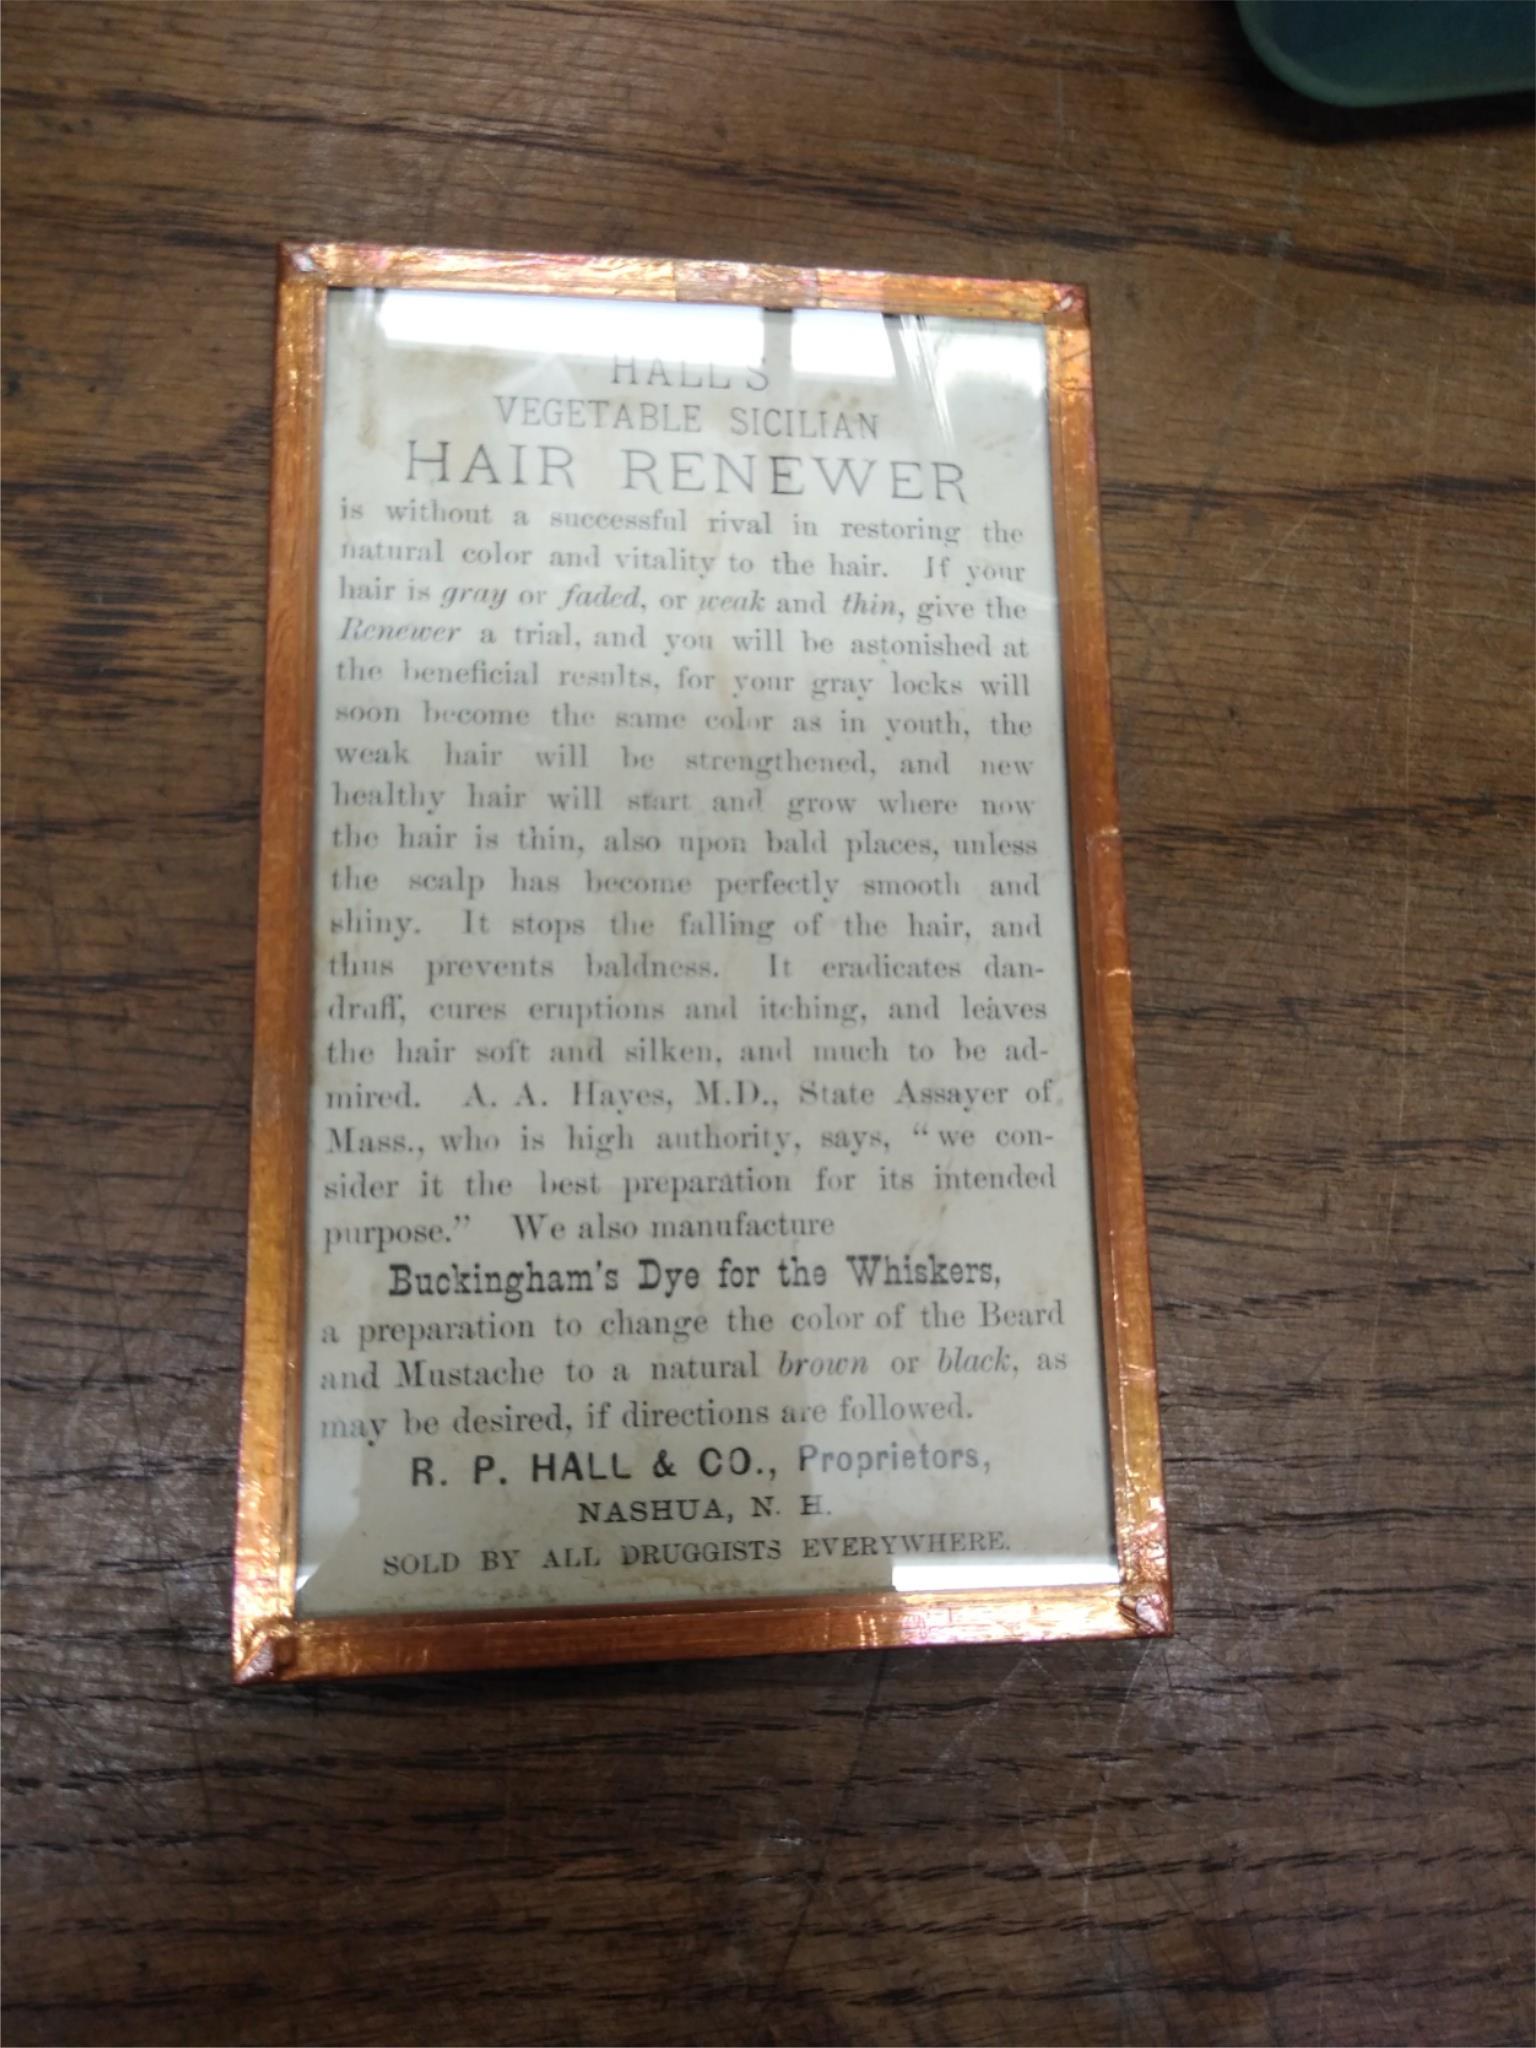 HALL'S
VEGETABLE SICILIAN
HAIR RENEWER
is without a successful rival in restoring the
natural color and vitality to the hair. If your
hair is gray or faded, or weak and thin, give the
Renewer a trial, and you will be astonished at
the beneficial results, for your gray locks will
soon become the same color as in youth, the
weak hair will be strengthened, and new
healthy hair will start and grow where now
the hair is thin, also upon bald places, unless
the scalp has become perfectly smooth and
shiny. It stops the falling of the hair, and
thus prevents baldness. It eradicates dan-
druff, cures eruptions and itching, and leaves
the hair soft and silken, and much to be ad-
mired. A. A. Hayes, M.D., State Assayer of
Mass., who is high authority, says, “we con-
sider it the best preparation for its intended
purpose.” We also manufacture
Buckingham's Dye for the Whiskers,
a preparation to change the color of the Beard
and Mustache to a natural brown or black, as
may be desired, if directions are followed.
R. P. HALL & CO., Proprietors,
NASHUA, N. H.
SOLD BY ALL DRUGGISTS EVERYWHERE.